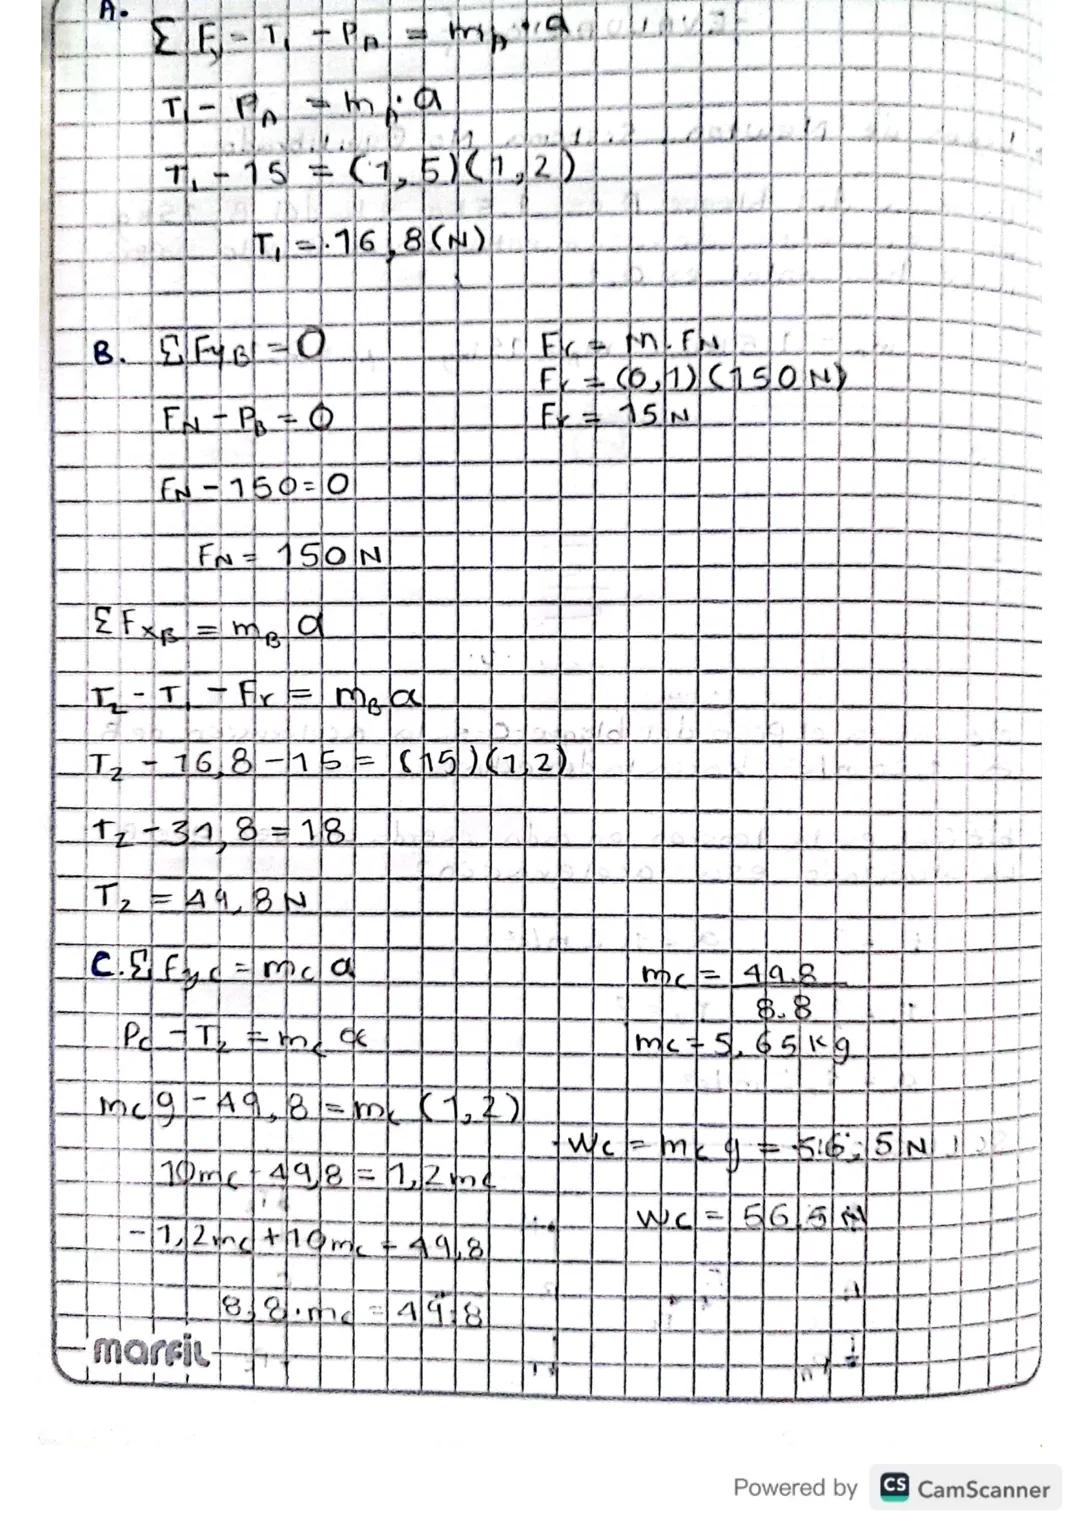 A.
Σ Fy = T₁ - P_A = m_A · a
T₁ - P_A = m_A · a
T₁ - 15 = (1,5)(1,2)
T₁ = 16,8 (N)
B. Σ FyB = 0
FN - P_B = 0
FN - 150 = 0
FN = 150 N
Fr = M. FN
Fr = (0,1) (150 N)
Fr = 15 N
Σ FxB = m_B a
T₂ - T₁ - Fr = m_B a
T₂ - 16,8 - 15 = (15)(1,2)
T₂ - 31,8 = 18
T₂ = 49,8 N
C. Σ Fyc = mc a
Pc - T₂ = mc a
mc g - 49,8 = mc (1,2)
10mc - 49,8 = 1,2 mc
- 1,2 mc + 10 mc = 49,8
8,8 · mc = 49,8
mc = 49.8
8.8
mc = 5,65 Kg
Wc = mc g = 56,5 N
Wc = 56,5 N
marfil
Powered by CS CamScanner